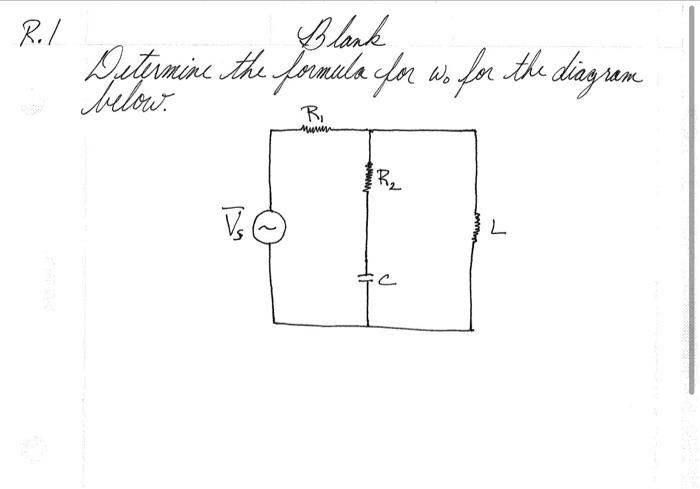 R.1 Blank
Determine the formula for ω₀ for the diagram
below.
R₁
R₂
V̅s ~
L
C